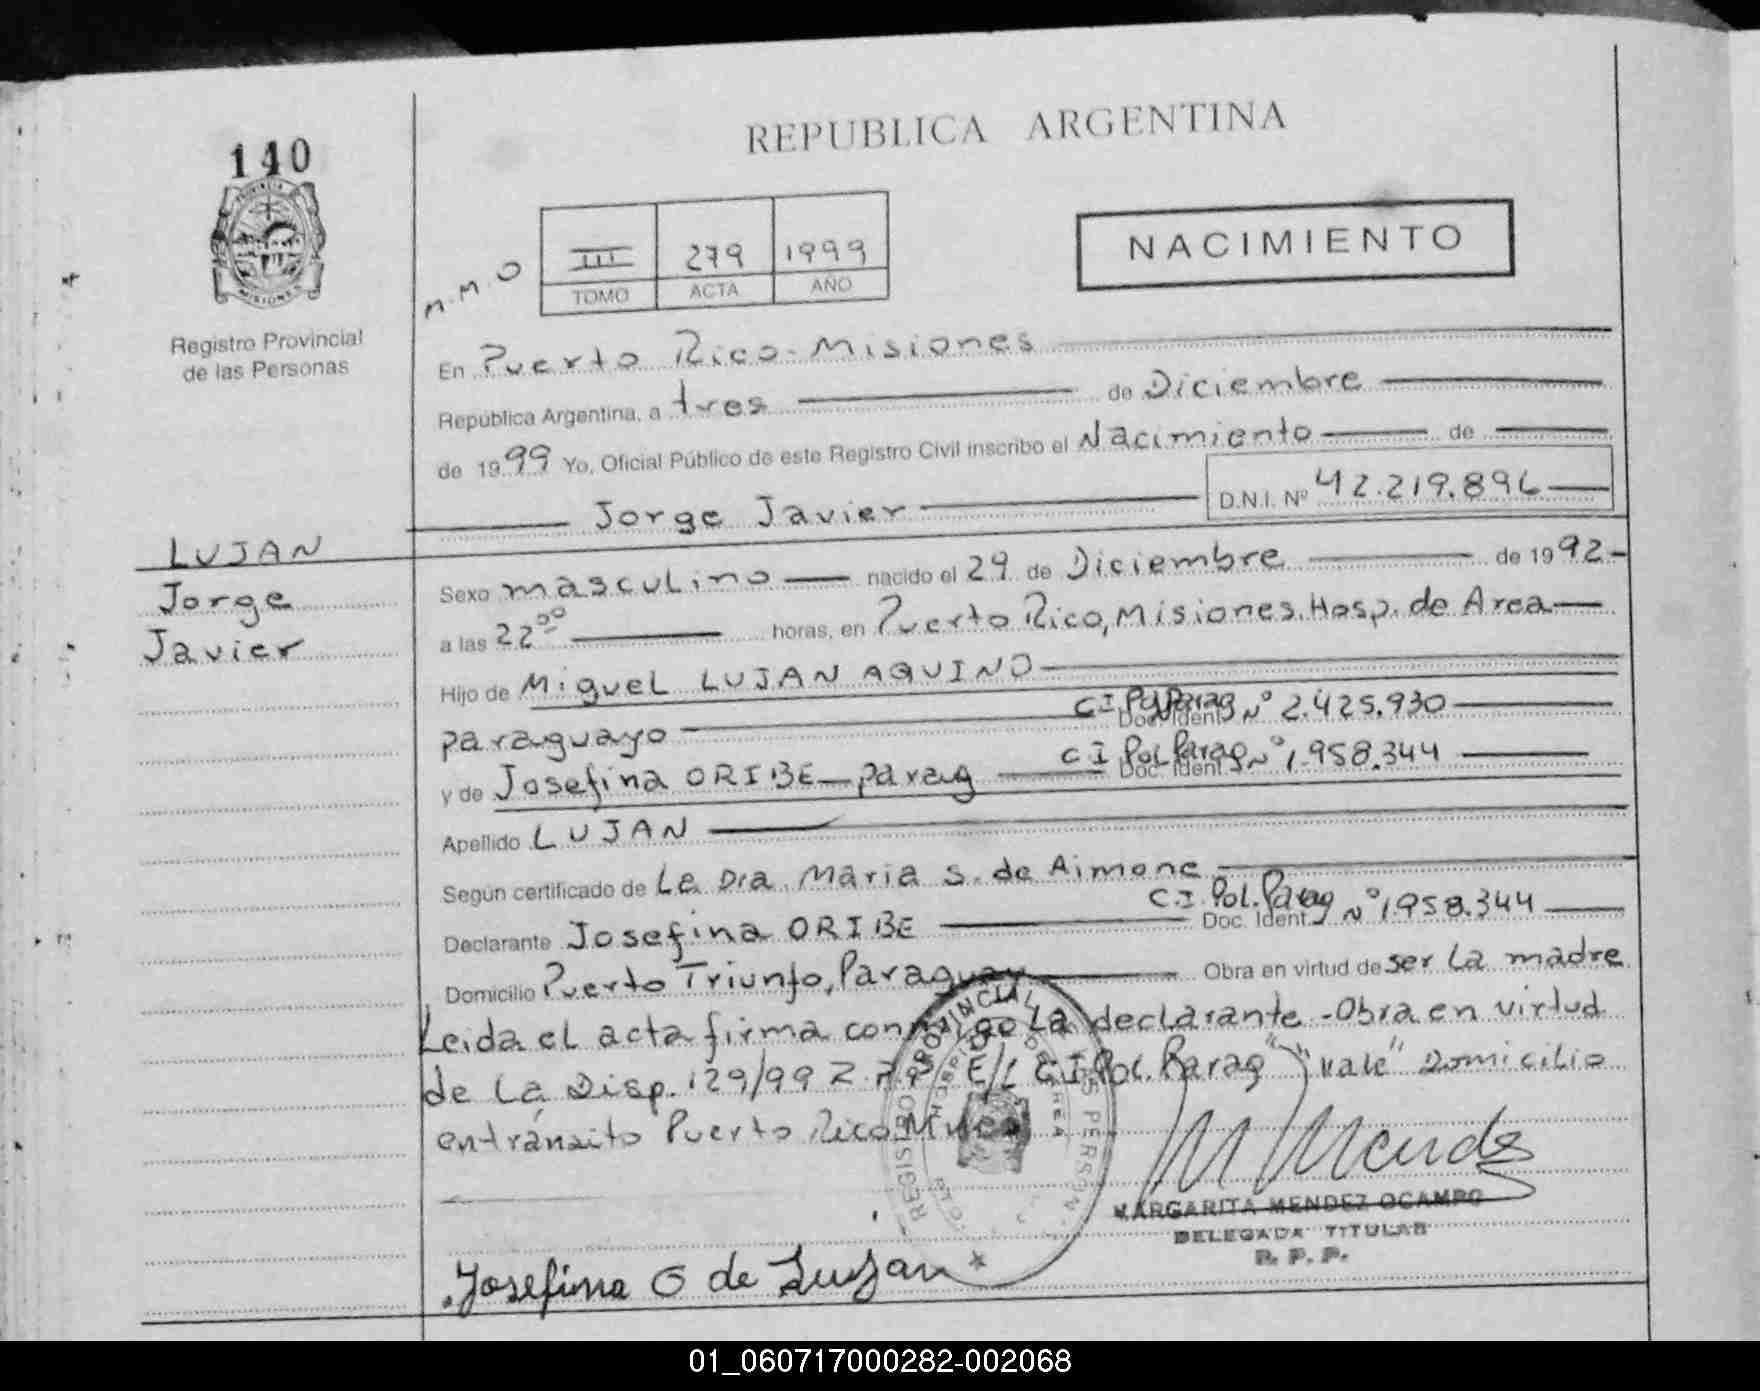 140
PROVINCIA
MISIONES
Registro Provincial
de las Personas
REPUBLICA ARGENTINA
M.M.O
III 279 1999
TOMO ACTA AÑO
NACIMIENTO
En Puerto Rico-Misiones
República Argentina, a tres de Diciembre
de 1999 Yo, Oficial Público de este Registro Civil inscribo el Nacimiento de
Jorge Javier D.N.I. Nº 42.219.896
LUJAN
Jorge
Javier
Sexo masculino nacido el 29 de Diciembre de 1992-
a las 22⁰⁰ horas, en Puerto Rico, Misiones. Hosp. de Area
Hijo de Miguel LUJAN AQUINO
paraguayo Doc. Ident. C I Pol Parag Nº 2.425.930
y de Josefina ORIBE-parag Doc. Ident. C I Pol Parag Nº 1.958.344
Apellido LUJAN
Según certificado de La Dra. Maria S. de Aimone
Declarante Josefina ORIBE Doc. Ident. C.I. Pol. Parag Nº 1.958.344
Domicilio Puerto Triunfo, Paraguay Obra en virtud de ser La madre
Leida el acta firma conmigo La declarante - Obra en virtud
de La Disp. 129/99 E/L C I Pol. Parag "vale" Domicilio
en tránsito Puerto Rico
REGISTRO PROVINCIAL PERSON
M Mendez
MARGARITA MENDEZ OCAMPO
DELEGADA TITULAR
R. P. P.
Josefina O de Lujan
01_060717000282-002068